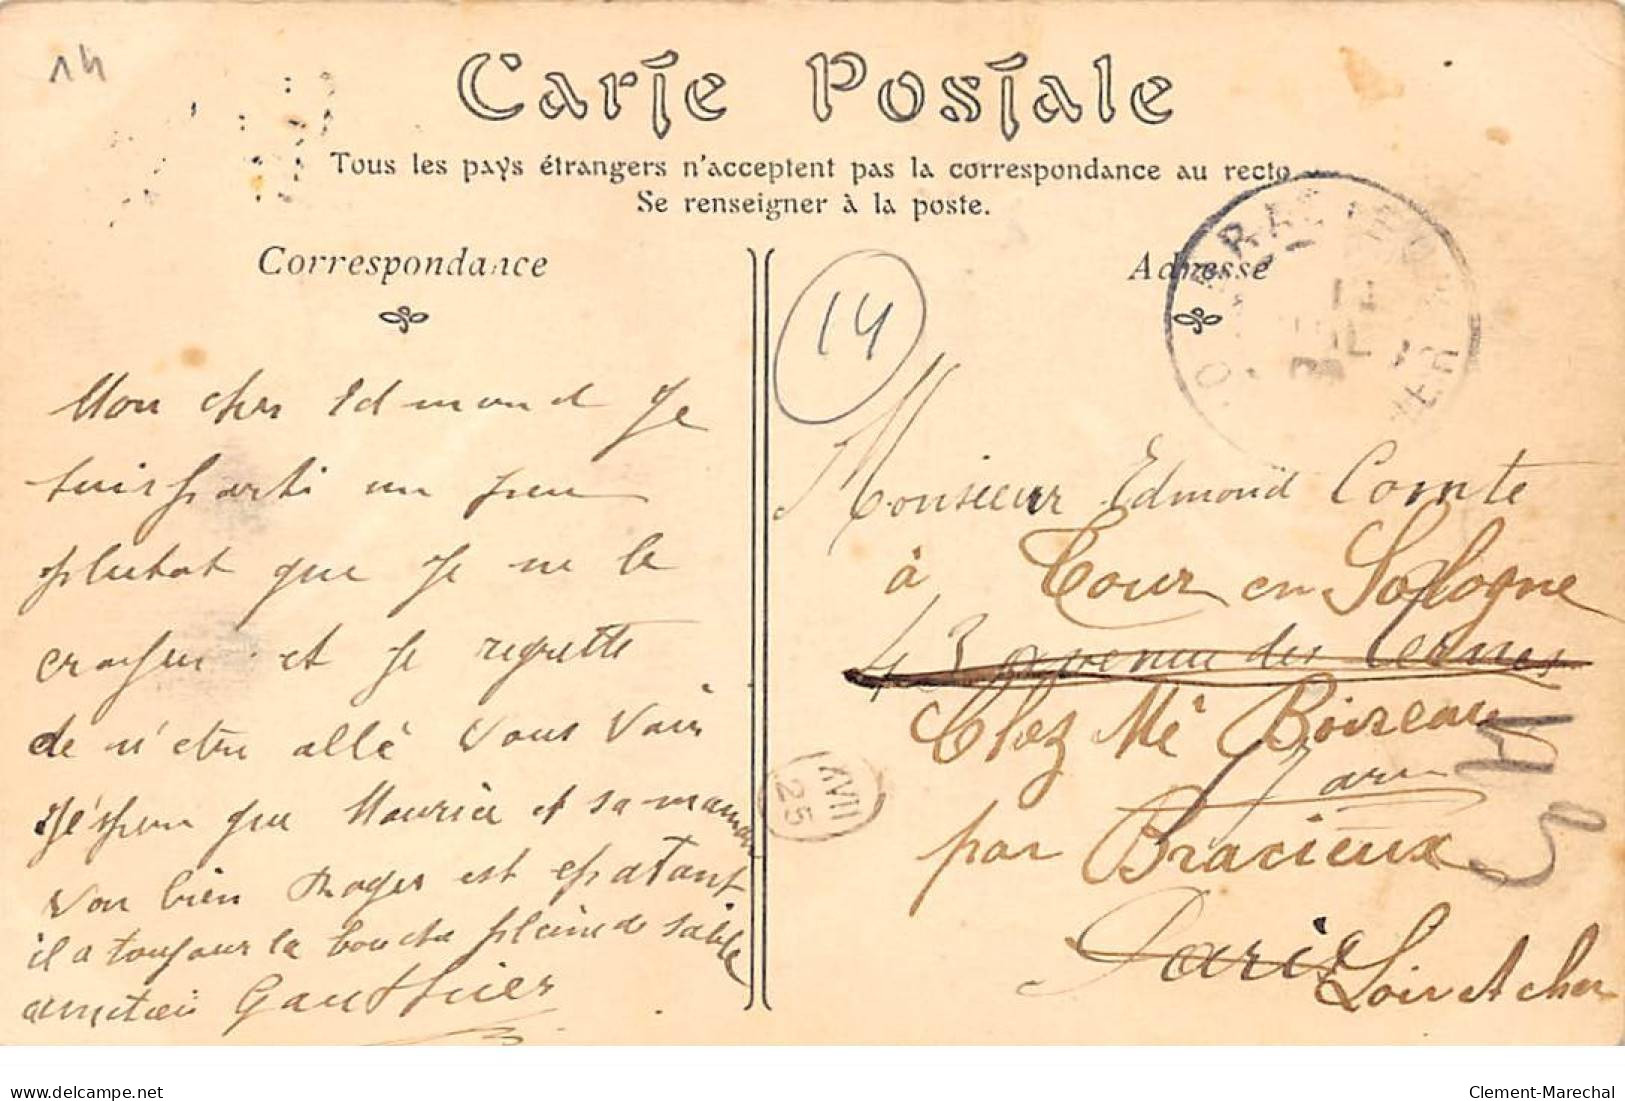 14
Carte Postale
Tous les pays étrangers n'acceptent pas la correspondance au recto
Se renseigner à la poste.
Correspondance
Mon cher Edmond Je
suis parti un peu
plutot que je ne le
croyer et je regrette
de n'etre allé vous voir
J'espere que Maurice et sa maman
von bien Roger est epatant
il a toujour la bouche pleine de sable
amitiés Gauthier
Adresse
14
Monsieur Edmond Comte
à Tour en Sologne
43 avenue des Ternes
Chez Me Boireau
par Bracieux
Paris Loir et Cher
XVII
25
delcampe.net
Clement-Marechal